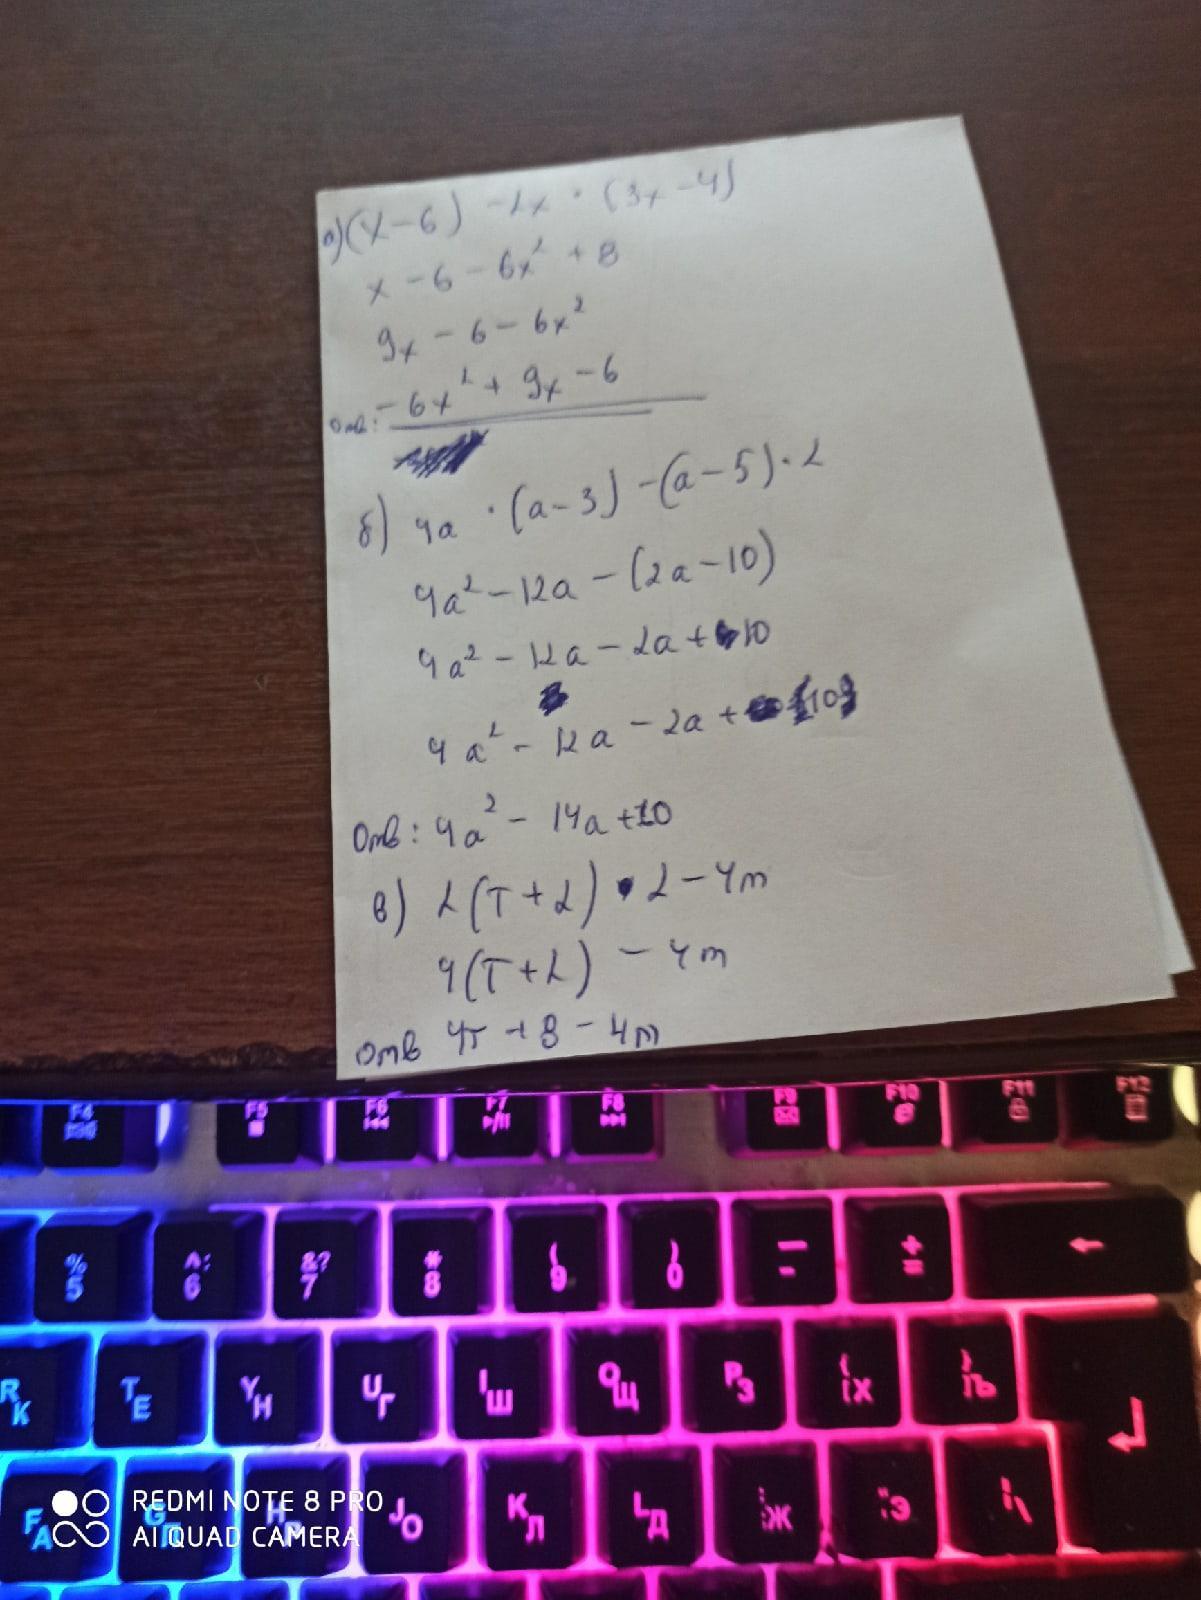 а)(x-6) -2x · (3x-4)
x - 6 - 6x² + 8
9x - 6 - 6x²
Отв: -6x² + 9x - 6
б) 4a · (a-3) - (a-5) · 2
4a² - 12a - (2a-10)
4a² - 12a - 2a + 10
4a² - 12a - 2a + 10
Отв: 4a² - 14a + 10
в) 2(T+2) · 2 - 4m
4(T+2) - 4m
Отв 4T + 8 - 4m
F4 F5 F6 F7 F8 F9 F10 F11 F12
% 5 ^: 6 &? 7 * 8 ( 9 ) 0 _ - + = ←
R К T Е Y Н U Г I Ш O Щ P З { [ Х } ] Ъ
F А G П H Р J О K Л L Д : ; Ж " ' Э | \
REDMI NOTE 8 PRO
AI QUAD CAMERA